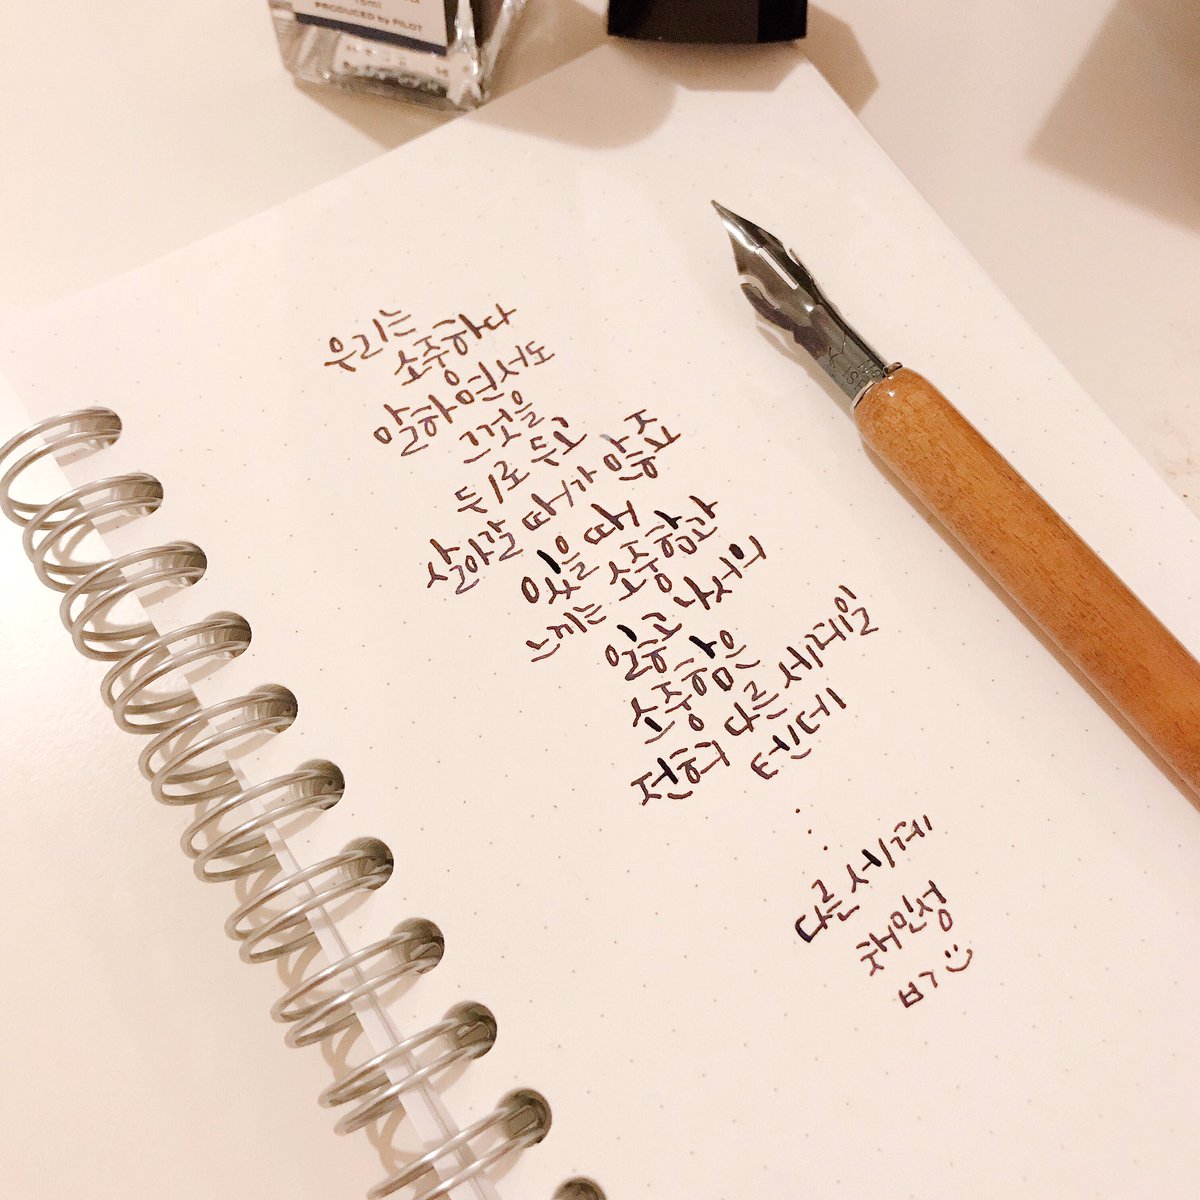 15ml
PRODUCED by PILOT
우리는
소중하다
말하면서도
그것을
뒤로 두고
살아갈 때가 많죠
있을 때
느끼는 소중함과
잃고 나서의
소중함은
전혀 다른 세계일
텐데
⋮
다른 세계
채민성
ㅂㄱ